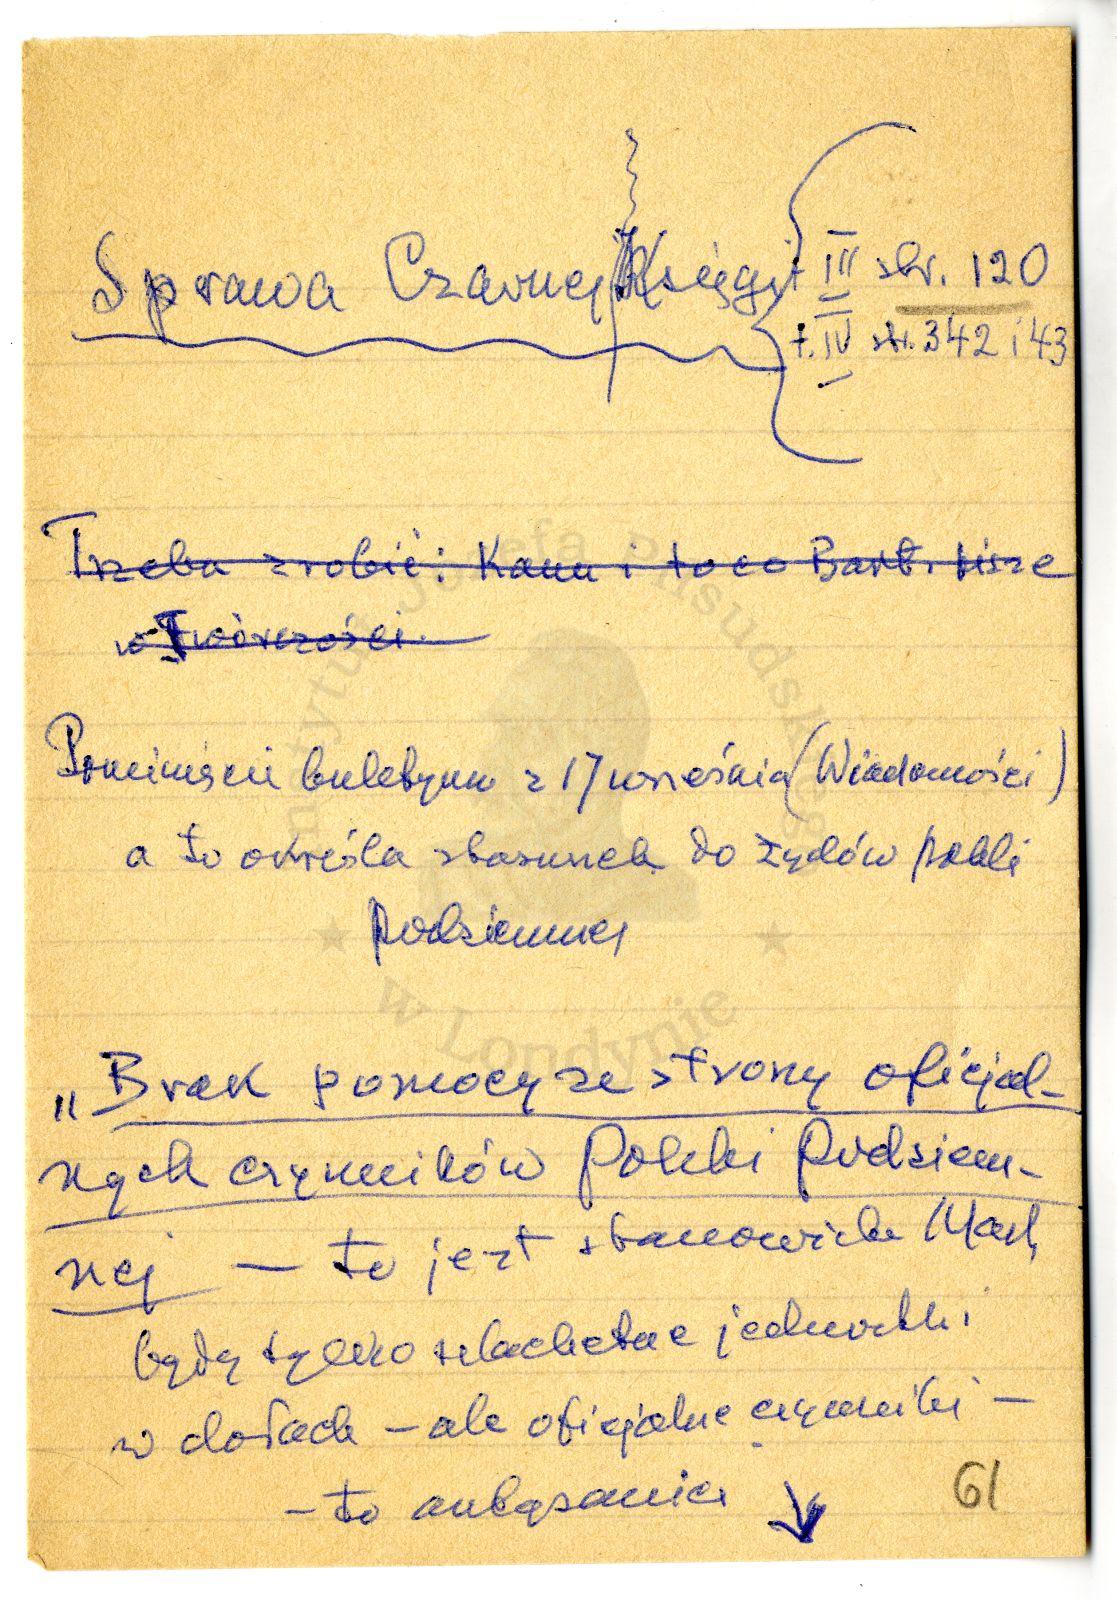 Sprawa Czarnej Księgi
t. III str. 120
t. IV str. 342 i 43
Trzeba zrobić: Kann i to co Bart. pisze
w Twórczości.
buletynu z 17 września (Wiadomości)
a to określa stosunek do Żydów Polski
podziemnej
"Brak pomocy ze strony oficjal-
nych czynników Polski Podziem-
nej — to jest stanowisko
będą tylko szlachetne jednostki
w dołach — ale oficjalne czynniki —
— to
61
Instytut Józefa Piłsudskiego
w Londynie